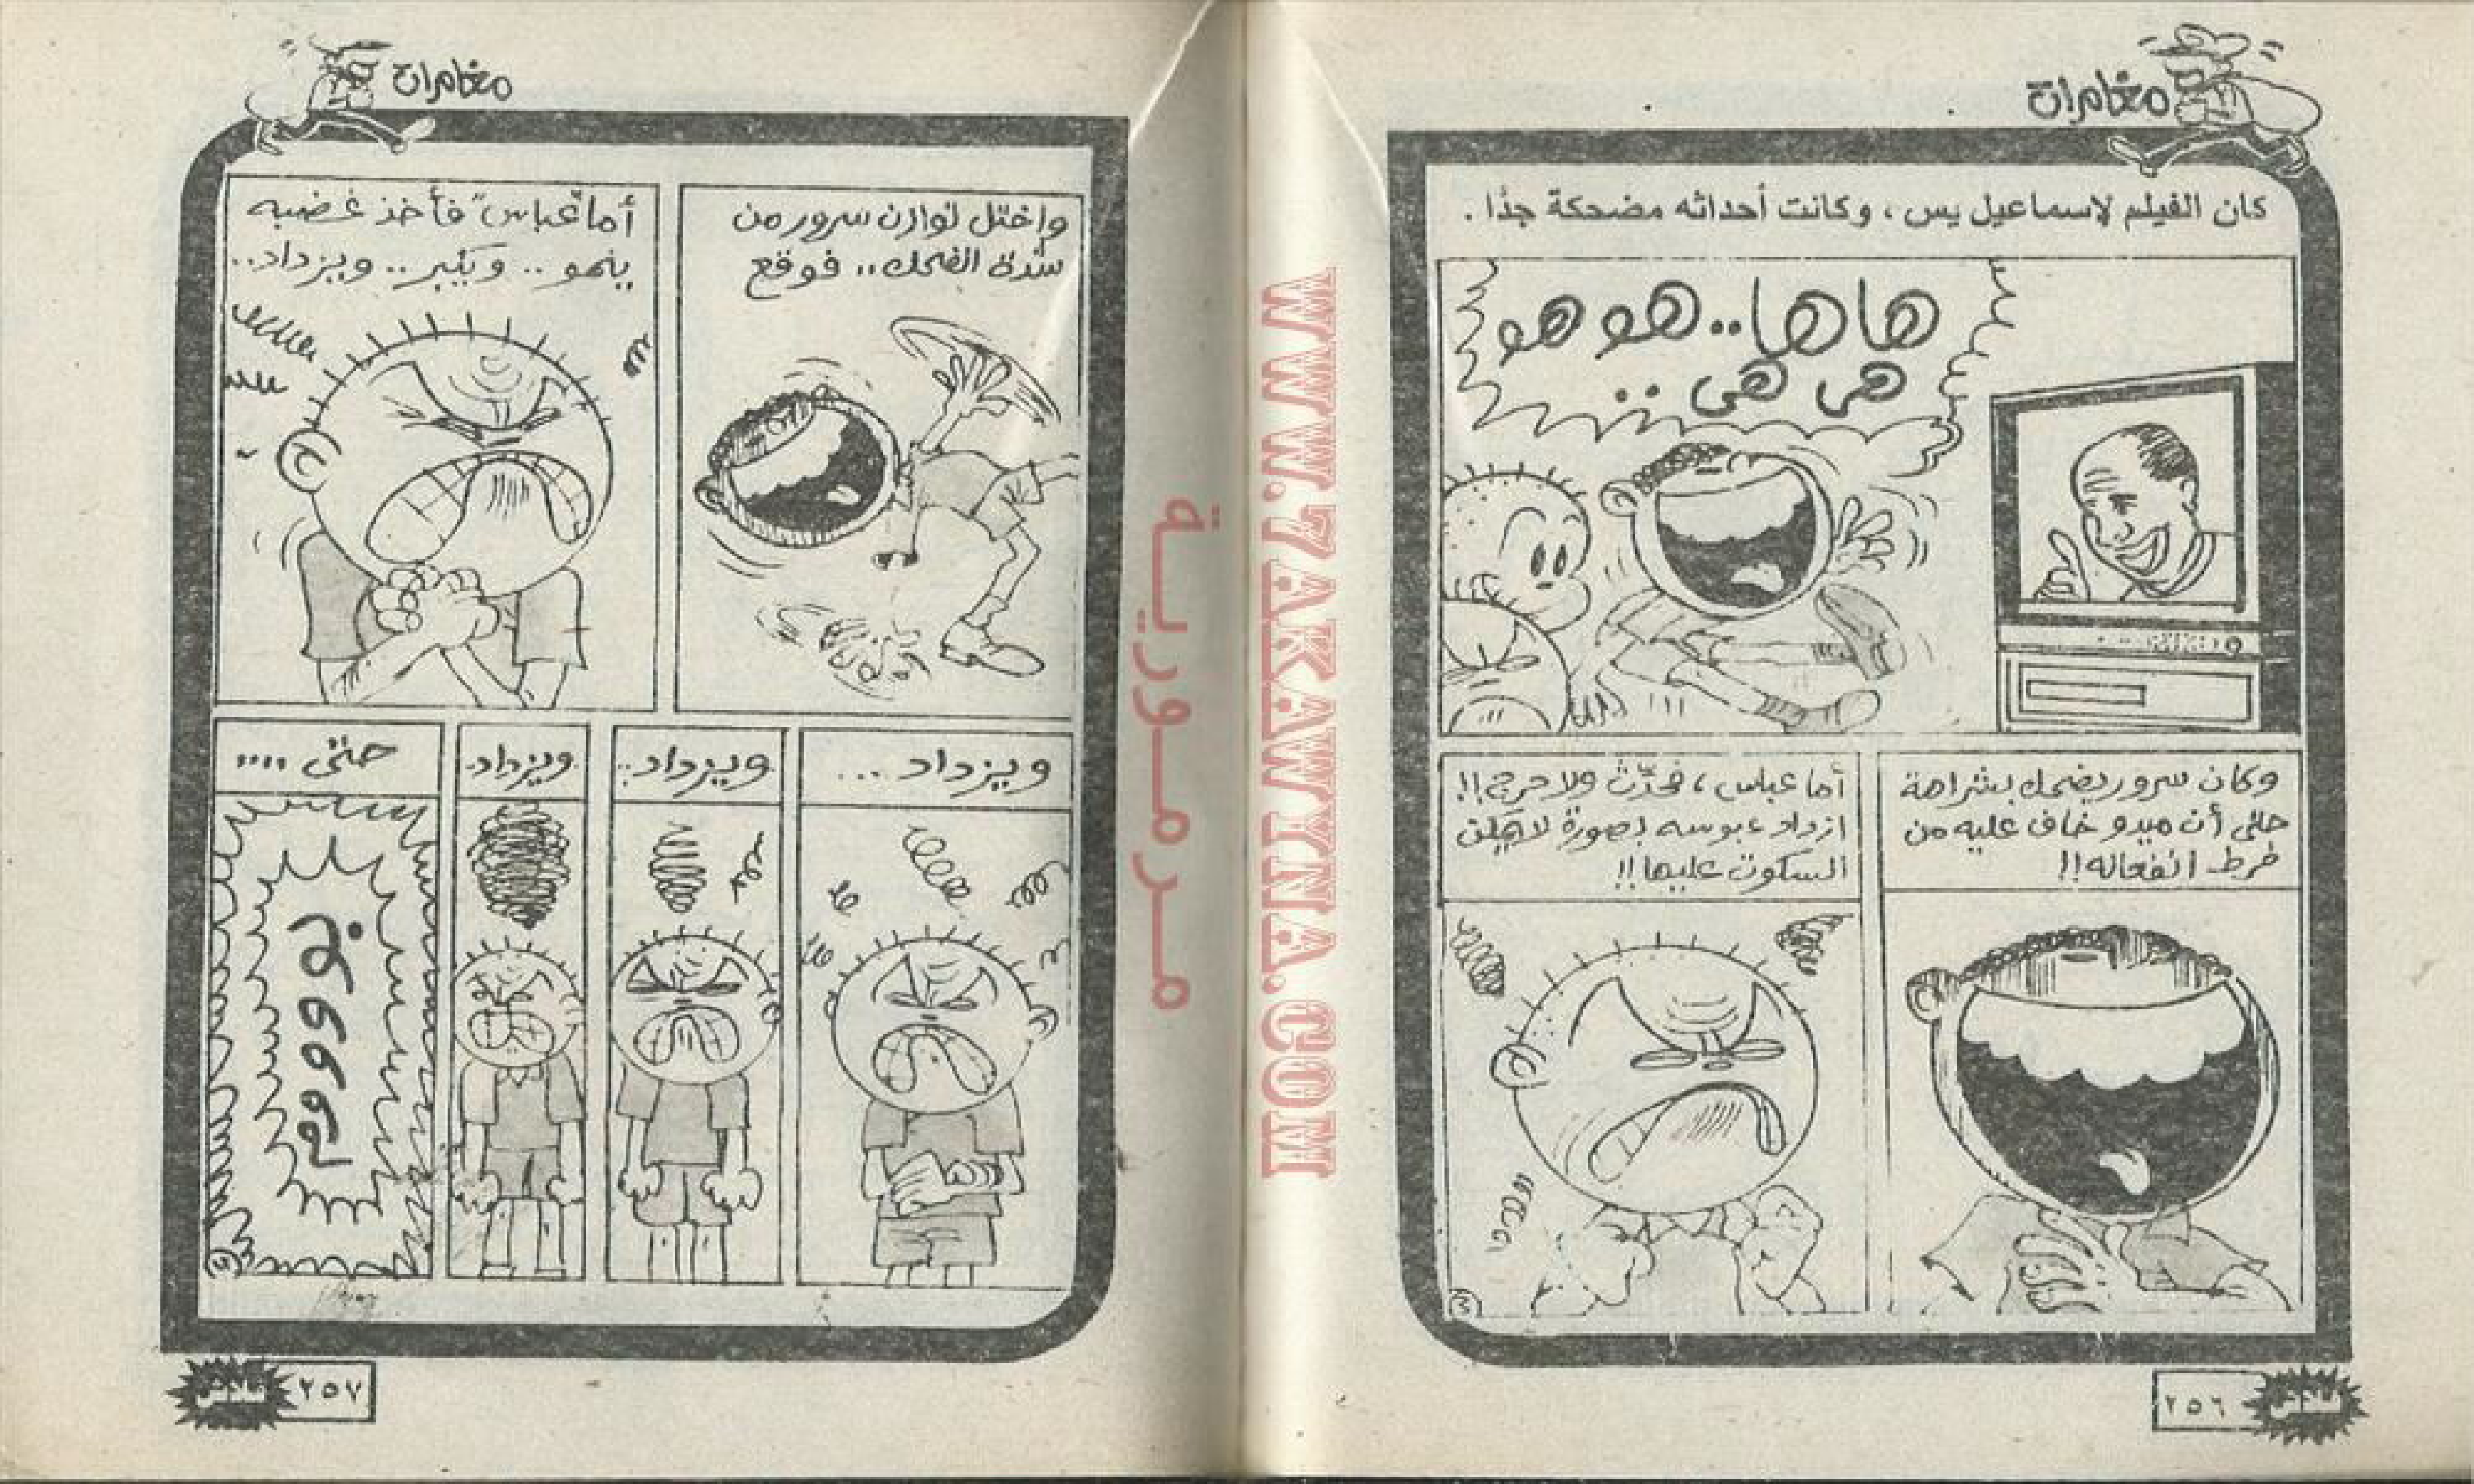 مغامرات
كان الفيلم لاسماعيل يس ، وكانت أحداثه مضحكة جدًا .
هاها.. هو هو
هى هى ..
وكان سرور يضحك بشراهة
حتى أن ميدو خاف عليه من
فرط انفعاله !!
أما عباس ، فحدّث ولا حرج !!
ازداد عبوسه بصورة لا يمكن
السكوت عليها !!
٢٥٦
WWW.7AKAWINA.COM
مغامرات
واختل توازن سرور من
شدة الضحك .. فوقع
أما "عباس" فأخذ غضبه
ينمو .. ويكبر .. ويزداد ..
ويزداد ...
ويزداد ..
ويزداد .
حتى ....
بووووم
٢٥٧